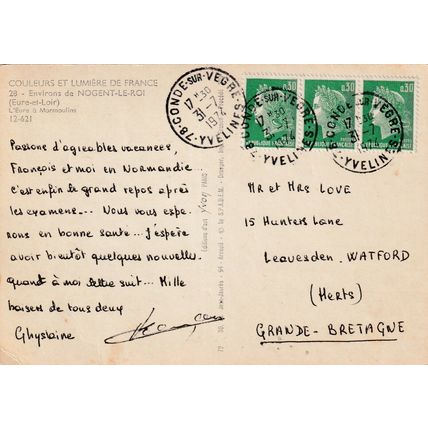 COULEURS ET LUMIÈRE DE FRANCE
28 - Environs de NOGENT-LE-ROI
(Eure-et-Loir)
L'Eure à Marmoulins
12-621
Passons d'agréables vacances,
François et moi en Normandie...
c'est enfin le grand repos après
les examens... Nous vous espé-
rons en bonne santé... J'espère
avoir bientôt quelques nouvelles
quant à moi lettre suit... Mille
baisers de tous deux
Ghyslaine
Editions d'art Yvon PARIS
78-CONDE-SUR-VEGRE
17H30
31-7
1974
YVELINES
78-CONDE-SUR-VEGRE
17H30
31-7
1974
YVELINES
CONDE-SUR-VEGRE
17H
31-7
YVELINES
0,30
0,30
0,30
MR et MRS LOVE
15 Hunters Lane
Leavesden_WATFORD
(Herts)
GRANDE-BRETAGNE